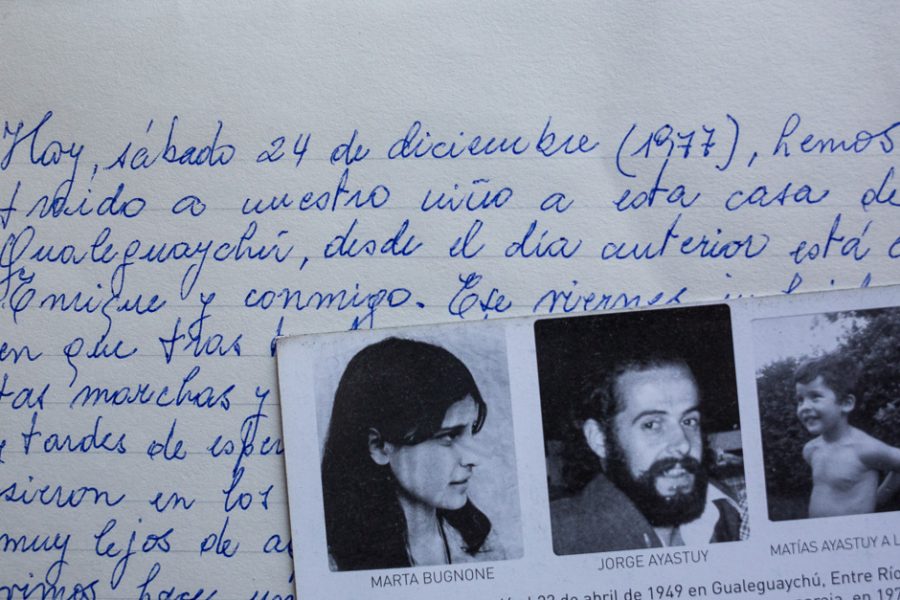 Hoy, sábado 24 de diciembre (1977), hemos
traido a nuestro niño a esta casa de
Gualeguaychú, desde el día anterior está
Enrique y conmigo. Ese viernes
en que tras
tas marchas y
y tardes de
sieron en los
muy lejos de
MARTA BUGNONE
JORGE AYASTUY
MATÍAS AYASTUY A
de abril de 1949 en Gualeguaychú, Entre
en